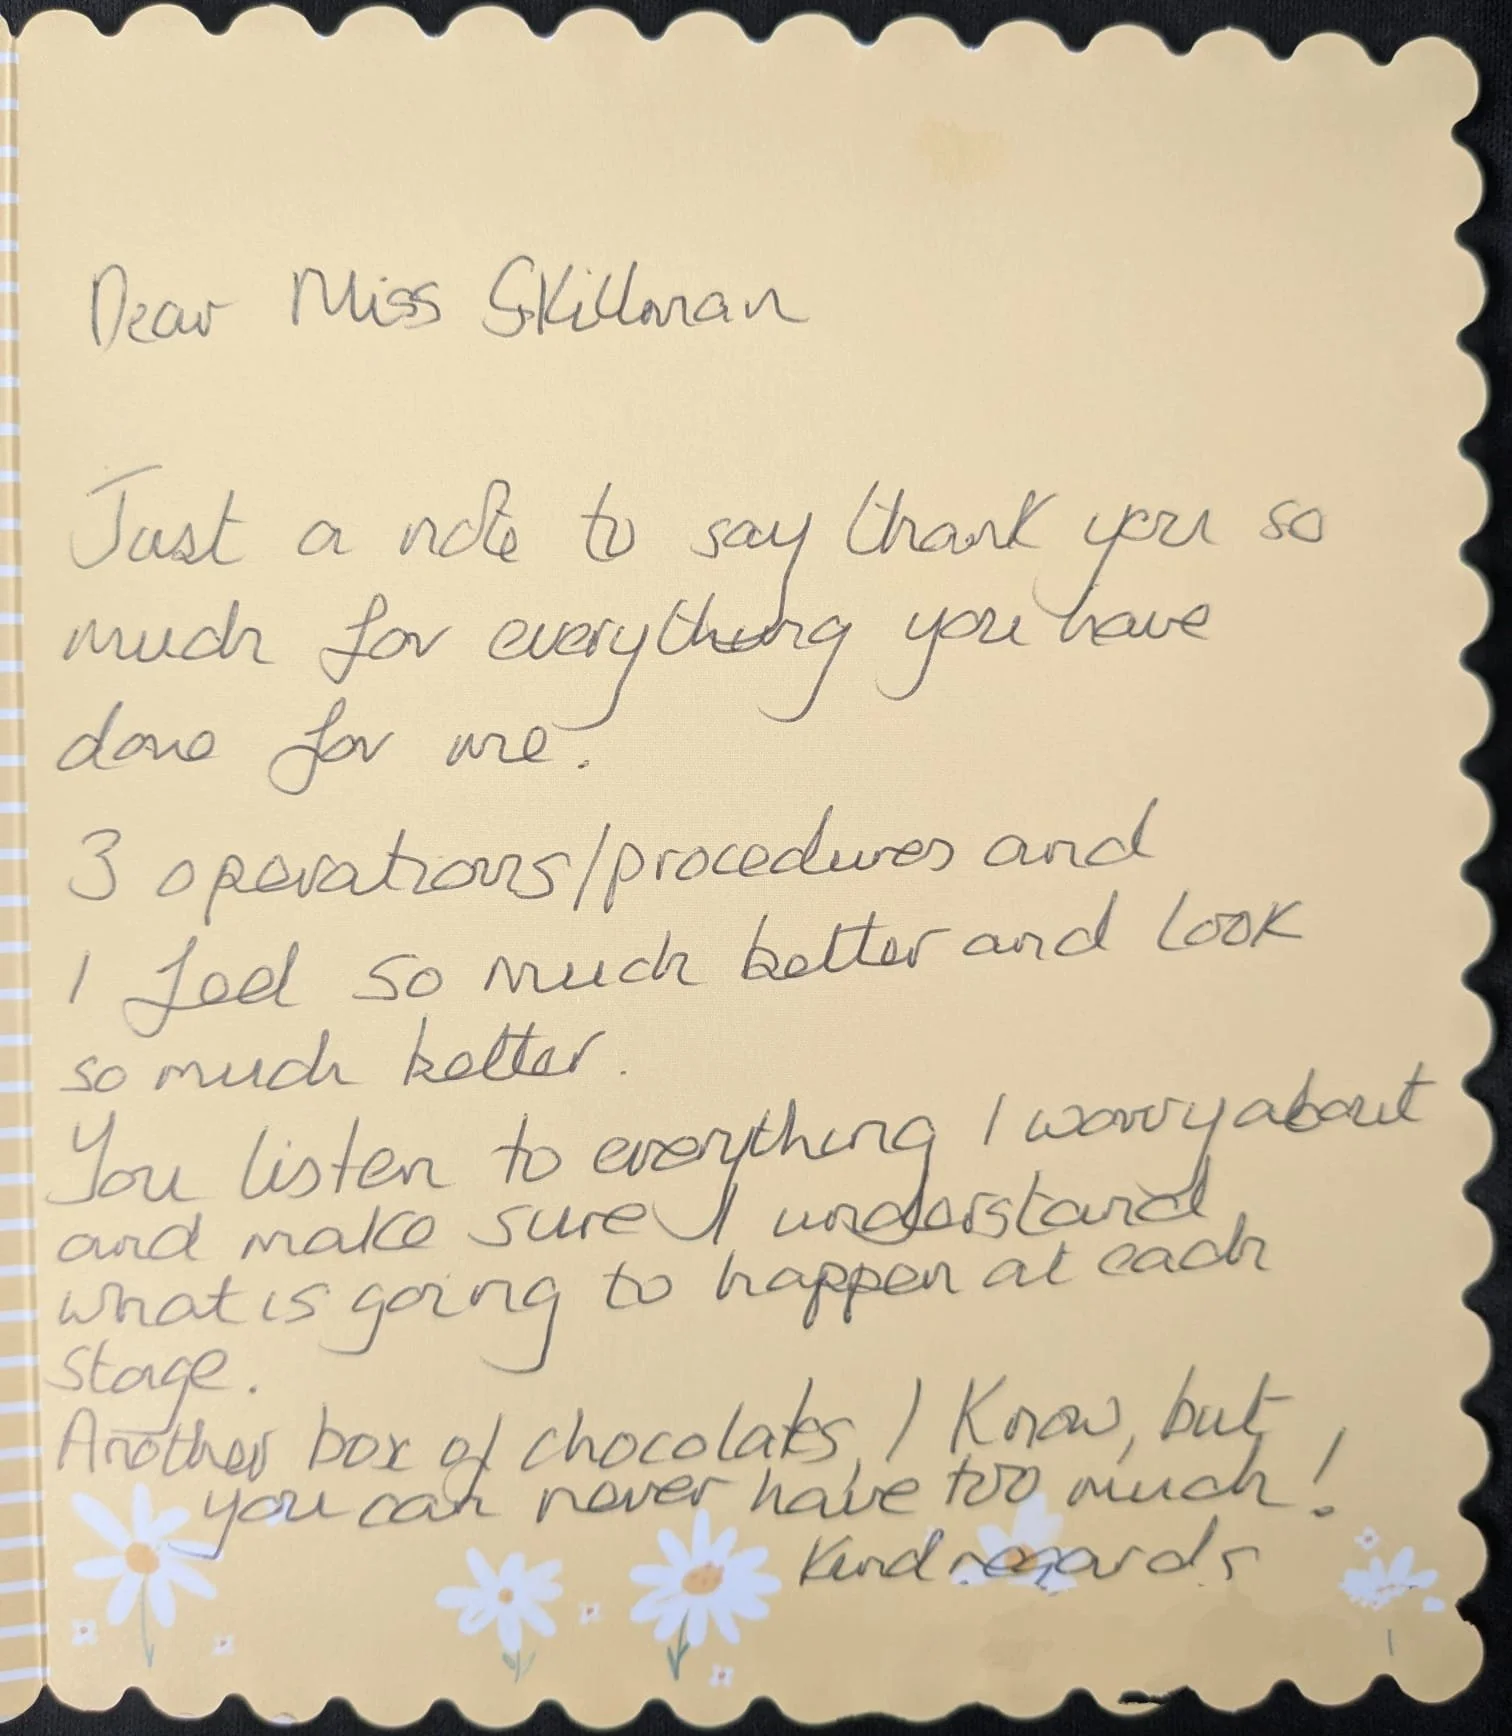 Dear Miss Skillman
Just a note to say thank you so
much for everything you have
done for me.
3 operations/procedures and
I feel so much better and look
so much better.
You listen to everything I worry about
and make sure I understand
what is going to happen at each
stage.
Another box of chocolates, I know, but
you can never have too much!
Kind regards